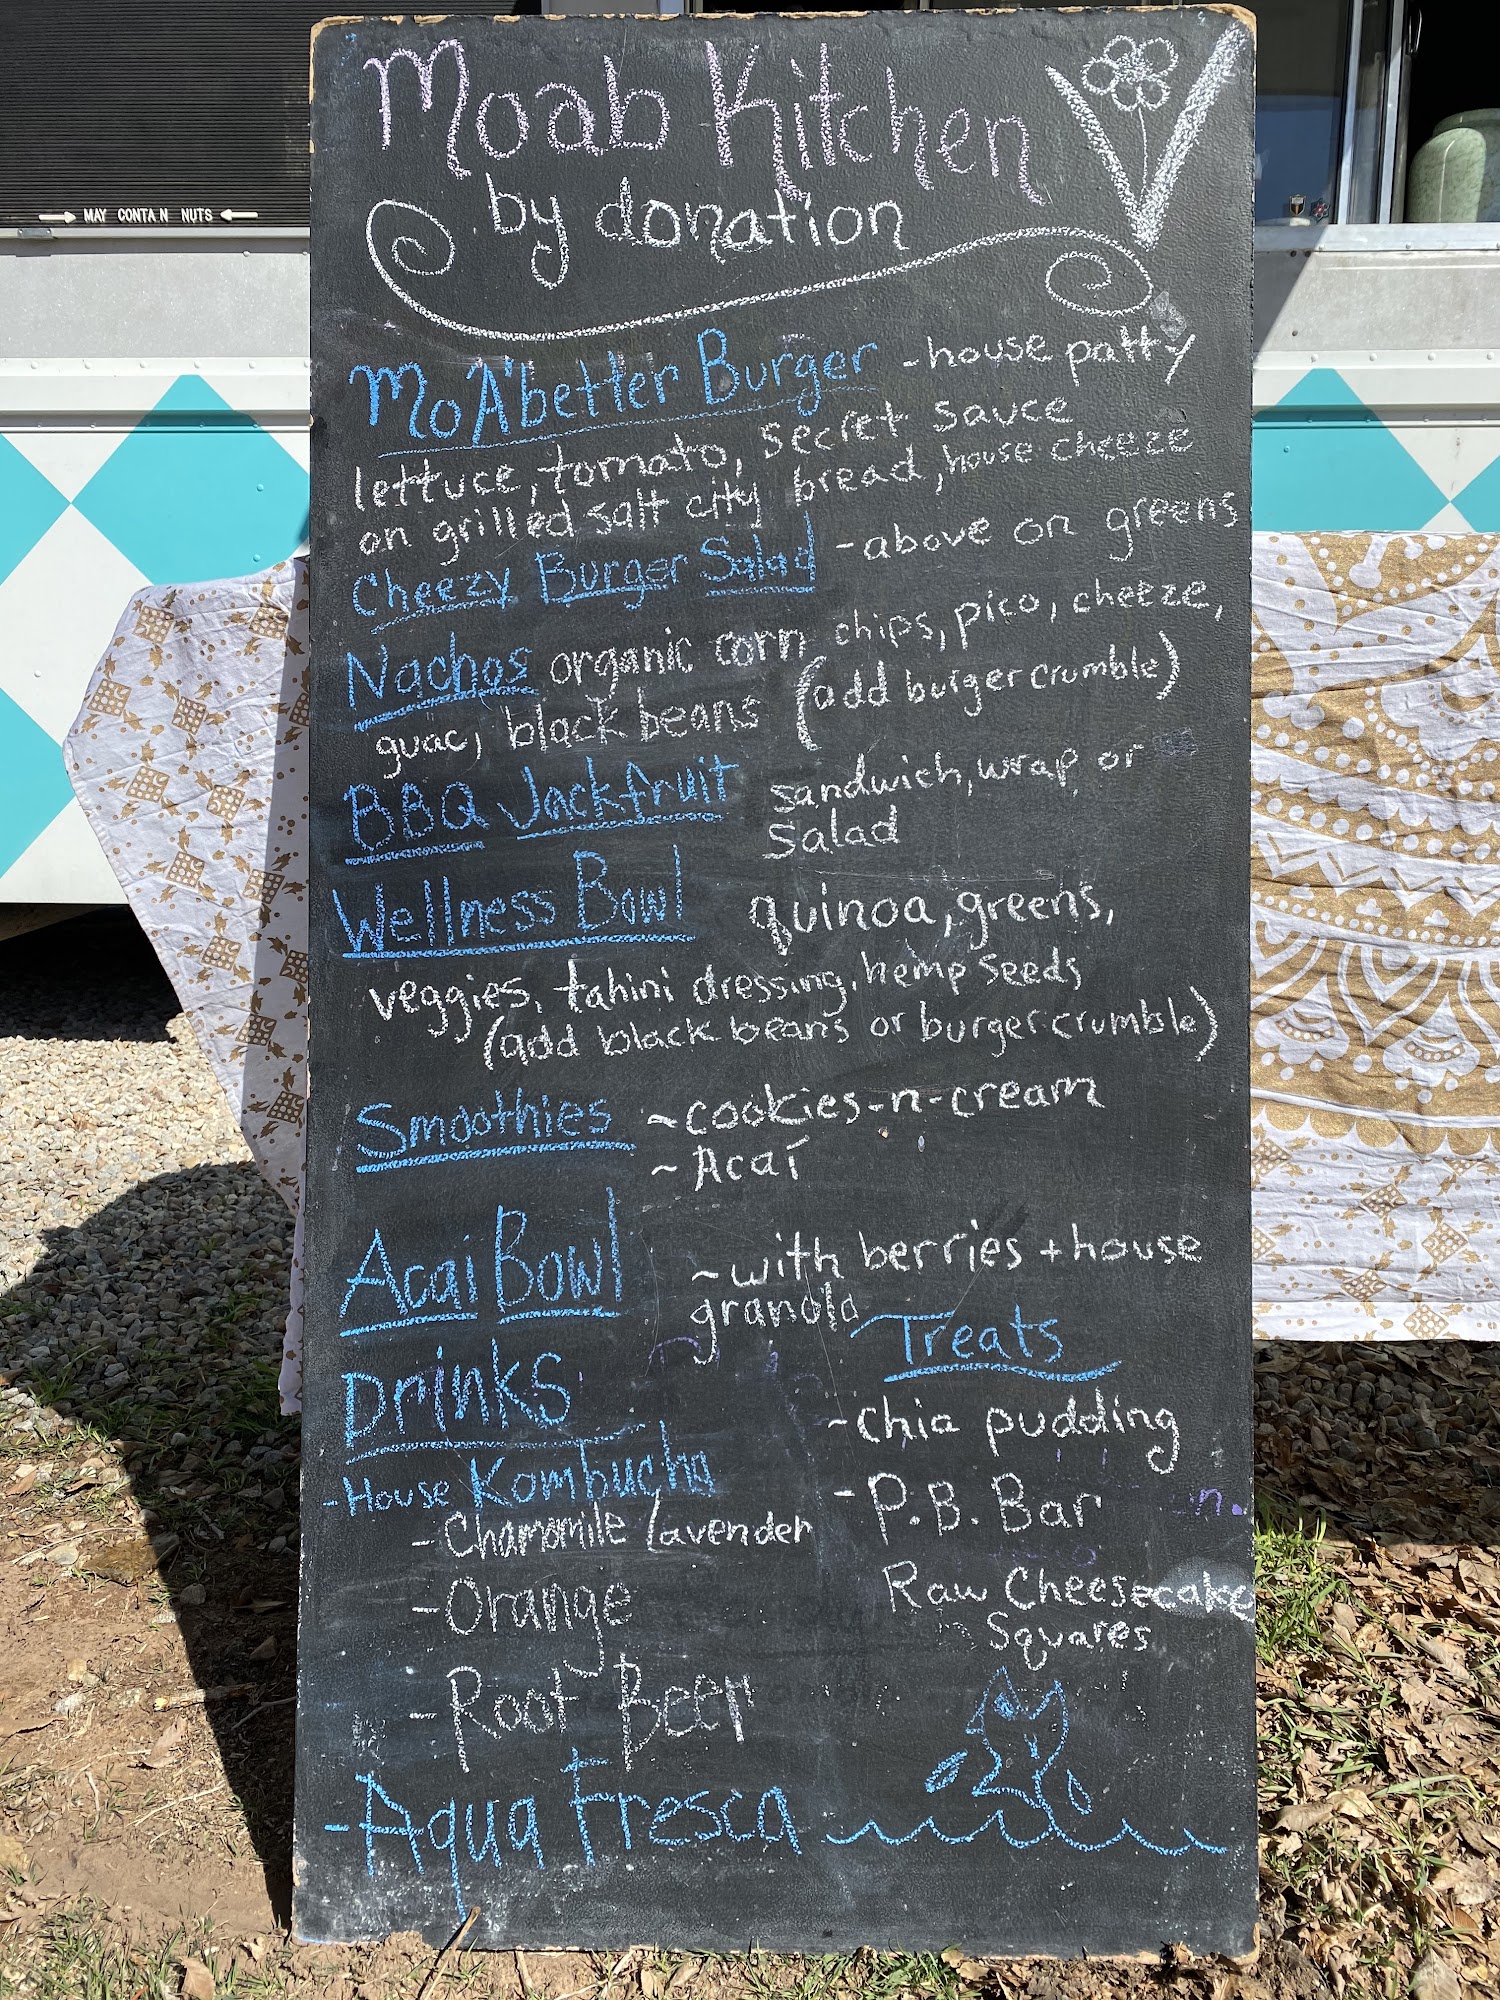 → MAY CONTA N NUTS ←
Moab Kitchen
by donation
MoA'better Burger - house patty
lettuce, tomato, secret sauce
on grilled salt city bread, house cheeze
Cheezy Burger Salad - above on greens
Nachos organic corn chips, pico, cheeze,
guac, black beans (add burger crumble)
BBQ Jackfruit sandwich, wrap or
Salad
Wellness Bowl quinoa, greens,
veggies, tahini dressing, hemp seeds
(add black beans or burger crumble)
Smoothies ~cookies-n-cream
~Acaí
Acai Bowl ~with berries + house
granola
Treats
-chia pudding
-P.B. Bar
Raw Cheesecake
Squares
Drinks
-House Kombucha
-Chamomile lavender
-Orange
-Root Beer
-Aqua Fresca